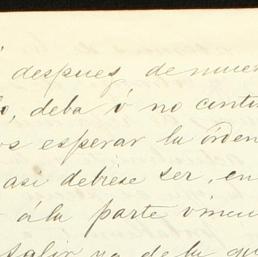 despues de nues
lo, deba ó no conti
os esperar la órden
asi debiese ser, en
á la parte vincu
salir ya de la qu